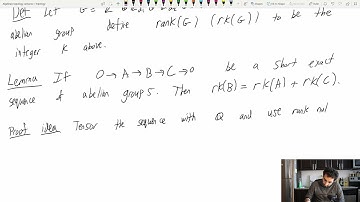 Def Let G =
abelian group define rank(G) (rk(G)) to be the
integer k above.
Lemma If 0→A→B→C→0 be a short exact
sequence of abelian groups. Then rk(B) = rk(A) + rk(C).
Proof idea Tensor the sequence with Q and use rank nul